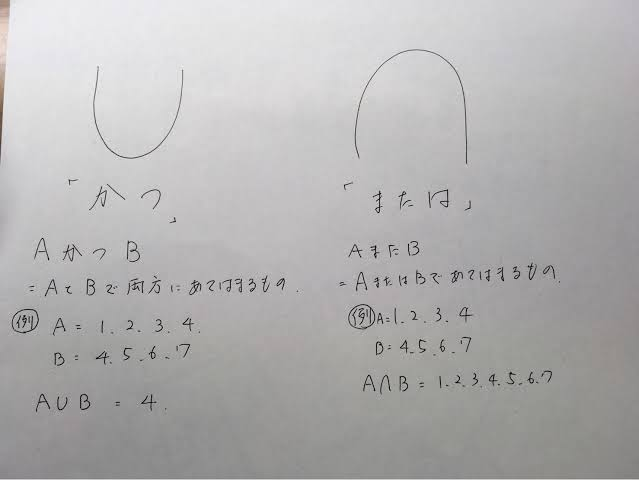 ∪
「かつ」
AかつB
=AとBで両方にあてはまるもの.
例 A = 1.2.3.4.
B = 4.5.6.7
A∪B = 4.
∩
「または」
AまたB
=AまたはBであてはまるもの.
例 A=1.2.3.4
B=4.5.6.7
A∩B = 1.2.3.4.5.6.7